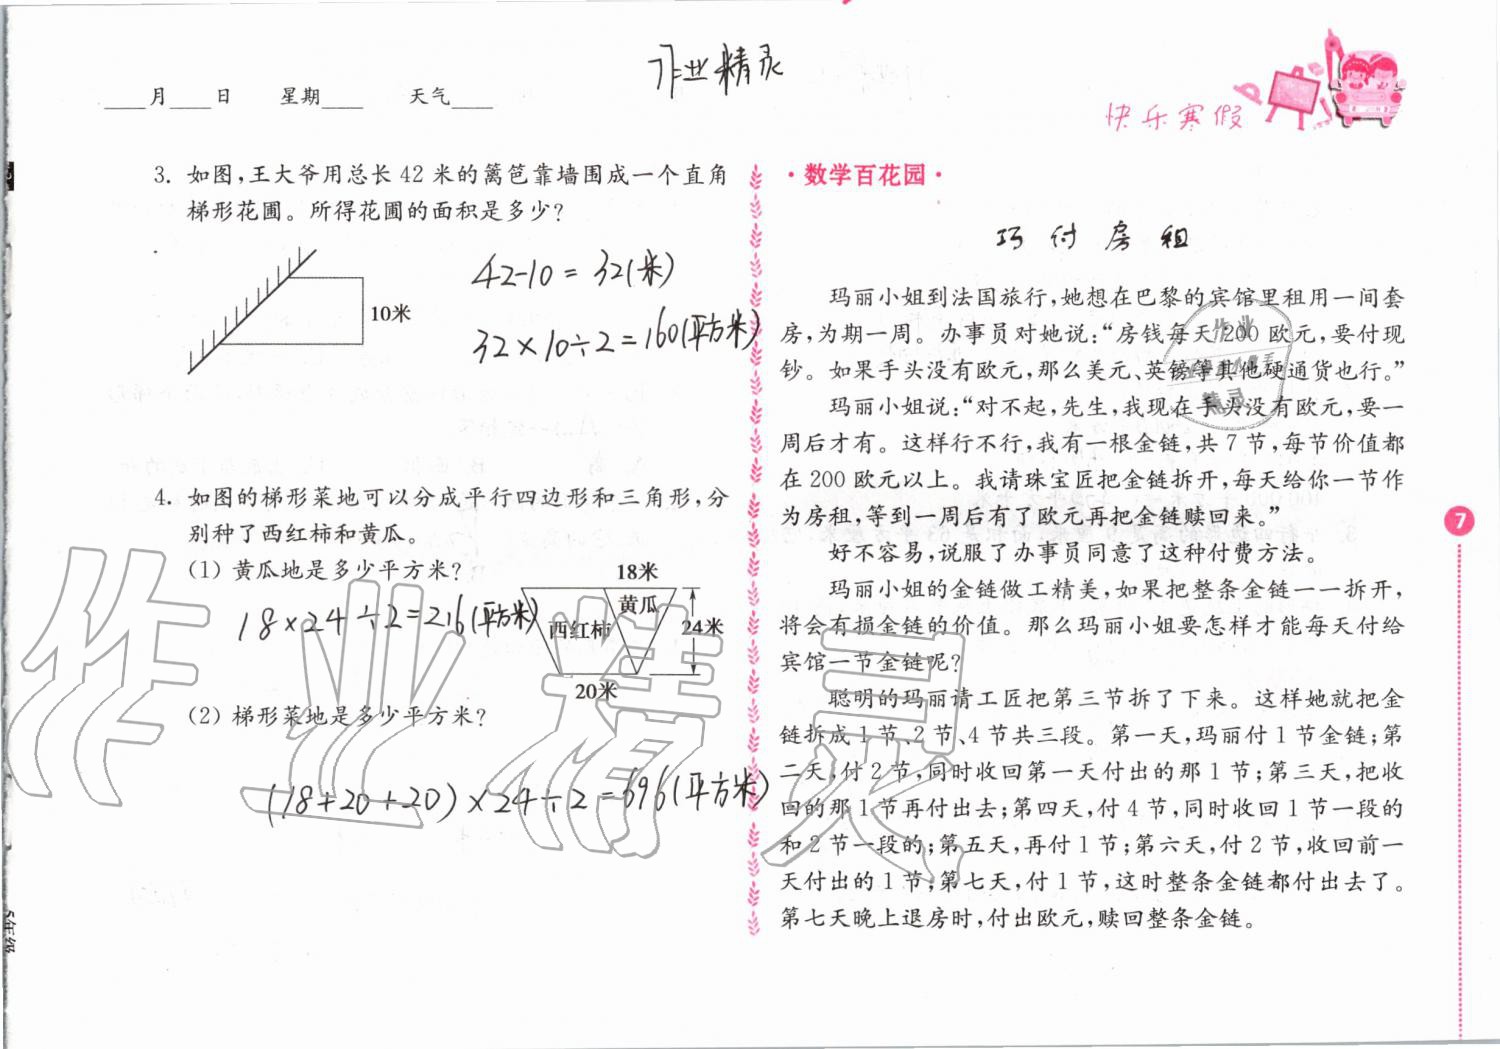 作业精灵
____月____日 星期____ 天气____
快乐寒假
3. 如图,王大爷用总长 42 米的篱笆靠墙围成一个直角
梯形花圃。所得花圃的面积是多少?
10米
42-10=32(米)
32×10÷2=160(平方米)
4. 如图的梯形菜地可以分成平行四边形和三角形,分
别种了西红柿和黄瓜。
(1) 黄瓜地是多少平方米?
18×24÷2=216(平方米)
18米
黄瓜
西红柿
24米
20米
(2) 梯形菜地是多少平方米?
(18+20+20)×24÷2=696(平方米)
5年级
·数学百花园·
巧付房租
玛丽小姐到法国旅行,她想在巴黎的宾馆里租用一间套
房,为期一周。办事员对她说:“房钱每天 200 欧元,要付现
钞。如果手头没有欧元,那么美元、英镑等其他硬通货也行。”
玛丽小姐说:“对不起,先生,我现在手头没有欧元,要一
周后才有。这样行不行,我有一根金链,共 7 节,每节价值都
在 200 欧元以上。我请珠宝匠把金链拆开,每天给你一节作
为房租,等到一周后有了欧元再把金链赎回来。”
好不容易,说服了办事员同意了这种付费方法。
玛丽小姐的金链做工精美,如果把整条金链一一拆开,
将会有损金链的价值。那么玛丽小姐要怎样才能每天付给
宾馆一节金链呢?
聪明的玛丽请工匠把第三节拆了下来。这样她就把金
链拆成 1 节、2 节、4 节共三段。第一天,玛丽付 1 节金链;第
二天,付 2 节,同时收回第一天付出的那 1 节;第三天,把收
回的那 1 节再付出去;第四天,付 4 节,同时收回 1 节一段的
和 2 节一段的;第五天,再付 1 节;第六天,付 2 节,收回前一
天付出的 1 节;第七天,付 1 节,这时整条金链都付出去了。
第七天晚上退房时,付出欧元,赎回整条金链。
7
作业精灵
作业
精灵